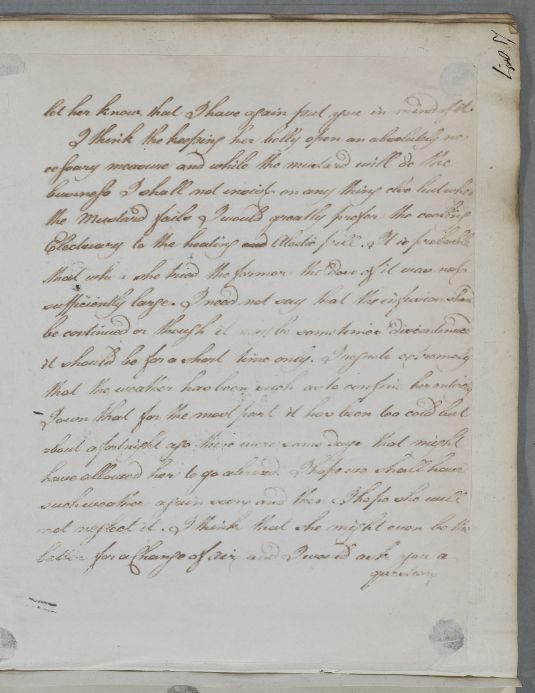 let her know that I have again put you in mind of it.
I think the keeping her belly open an absolutely ne
cessary measure and while the mustard will do the
business I shall not insist on any thing else but when
the Mustard fails I would greatly prefer the cooling
Electuary to the heating and Aloetic pill. It is probable
that when she tried the former the dose of it was not
sufficiently large. I need not say that the infusion should
be continued or though it may be sometimes discontinued
it should be for a short time only. I regrete extremely
that the weather has been such as to confine her entirely
I own that for the most part it has been too cold but
about a fortnight ago there were some days that might
have allowed her to go abroad. I hope we shall have
such weather again soon and then I hope she will
not neglect it. I think that she might even be the
better for a Change of air and I would ask you a
question